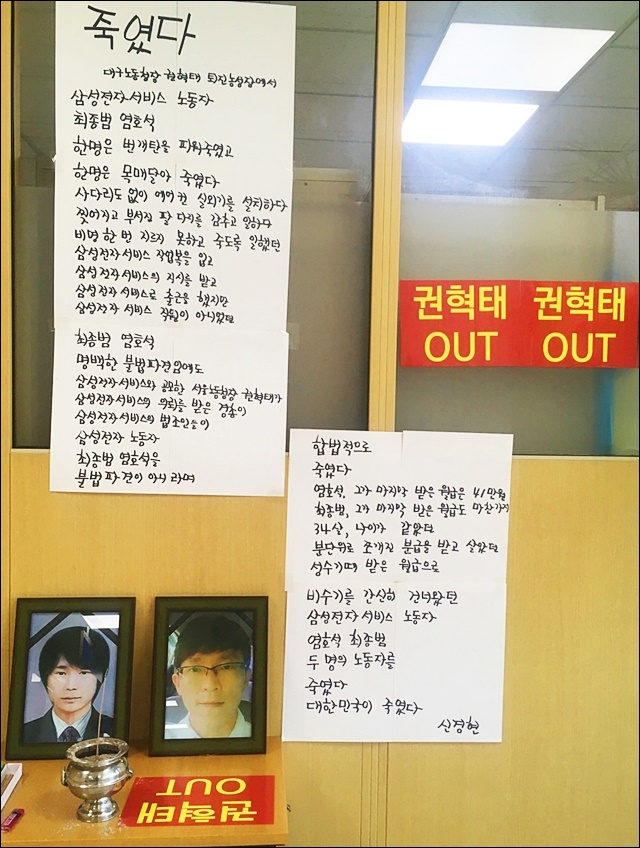 죽였다
대구노동청장 권혁태 퇴진농성장에서
삼성전자서비스 노동자
최종범 염호석
한명은 번개탄을 피워죽였고
한명은 목매달아 죽였다
사다리도 없이 에어컨 실외기를 설치하다
찢어지고 부서진 팔 다리를 감추고 일하다
비명 한 번 지르지 못하고 죽도록 일했던
삼성전자서비스 작업복을 입고
삼성전자서비스의 지시를 받고
삼성전자서비스로 출근을 했지만
삼성전자서비스 직원이 아니었던
최종범 염호석
명백한 불법파견임에도
삼성전자서비스와 공모한 서울노동청장 권혁태가
삼성전자서비스의 의뢰를 받은 경총이
삼성전자서비스의 법조인들이
삼성전자 노동자
최종범 염호석을
불법파견이 아니라며
합법적으로
죽였다
염호석, 그가 마지막 받은 월급은 41만원
최종범, 그가 마지막 받은 월급도 마찬가지
34살, 나이가 같았던
분단위로 쪼개진 분급을 받고 살았던
성수기때 받은 월급으로
비수기를 간신히 건너왔던
삼성전자서비스 노동자
염호석 최종범
두 명의 노동자를
죽였다
대한민국이 죽였다
신경현
권혁태 OUT
권혁태 OUT
권혁태 OUT